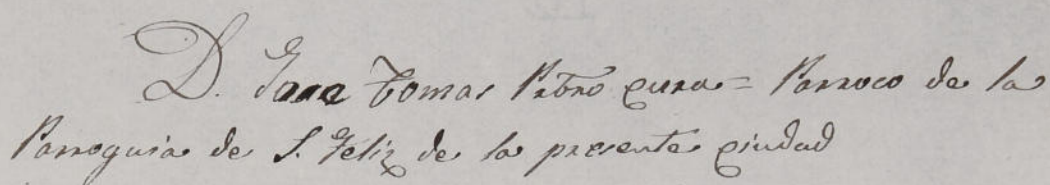 D. Jose Tomas Pbro cura = Parroco de la
Parroquia de S. Feliz de la presente ciudad